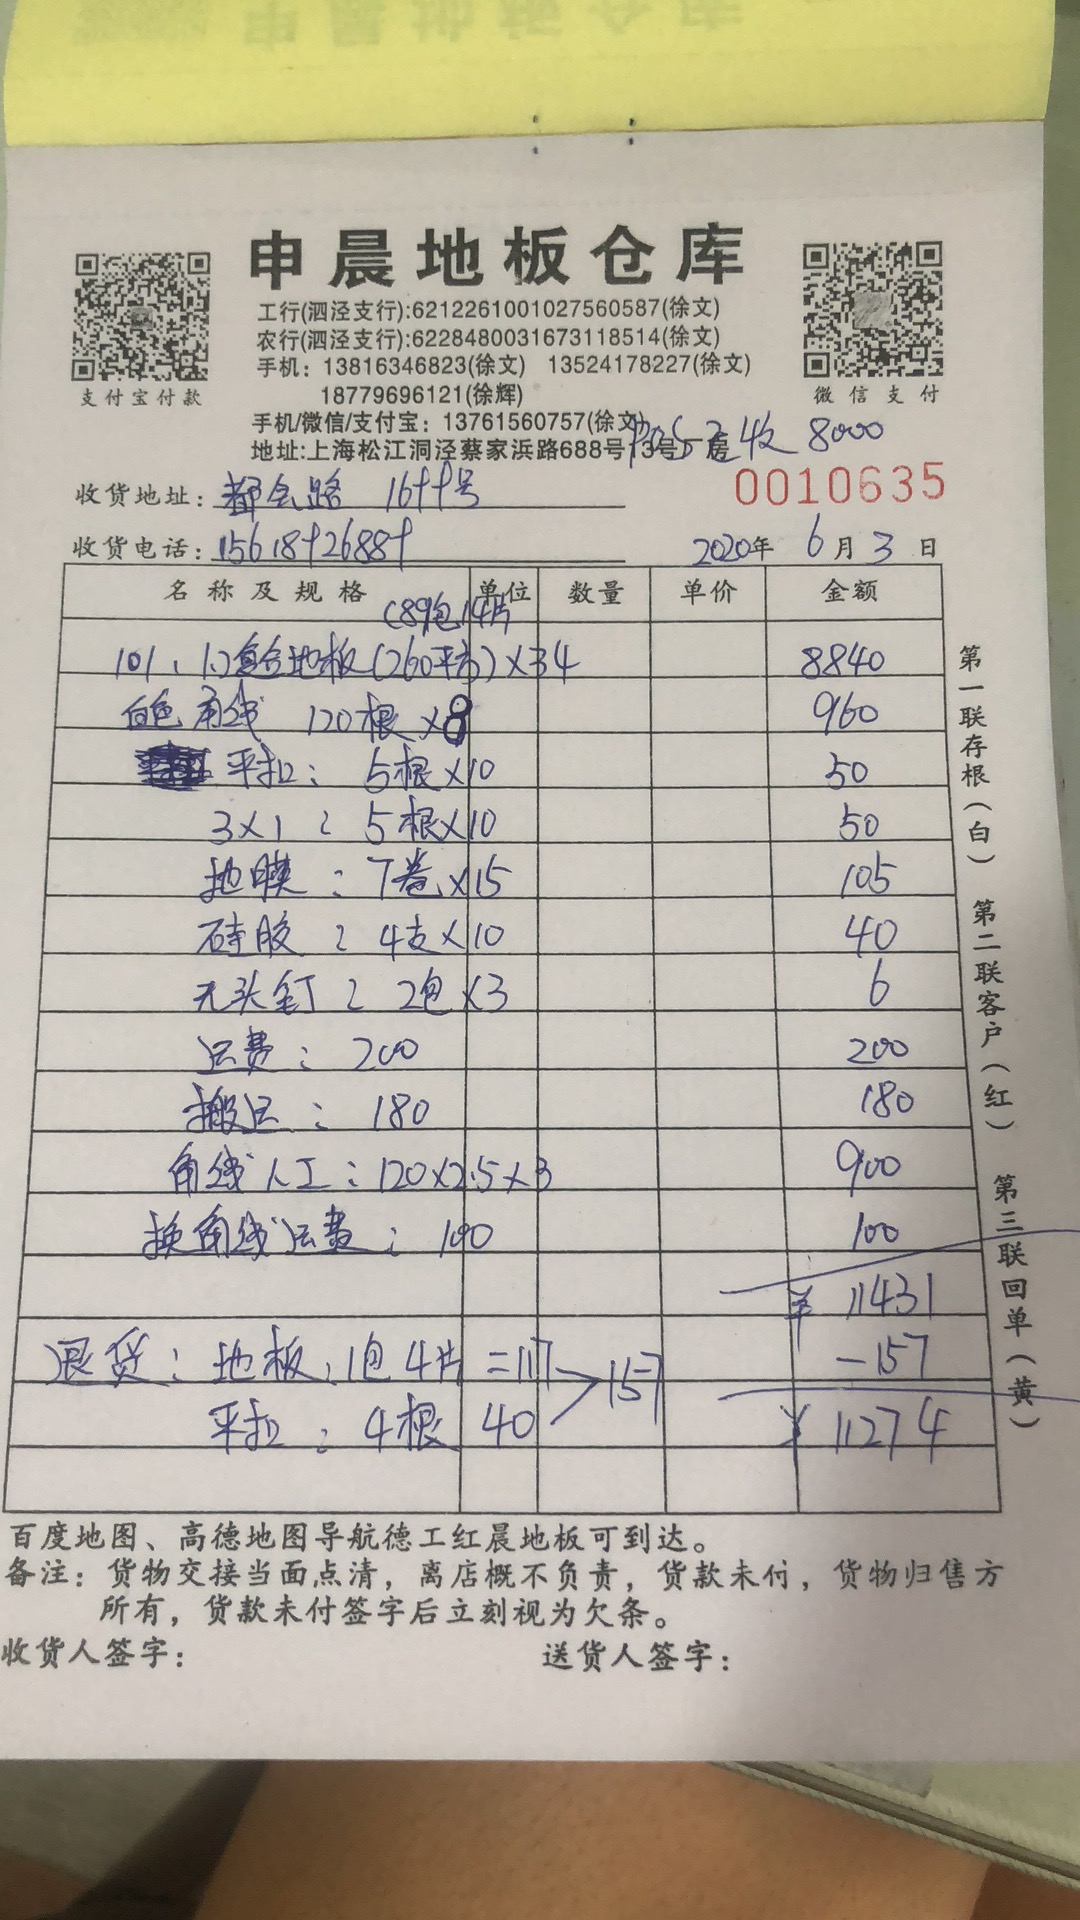 申晨地板仓库
工行(泗泾支行):6212261001027560587(徐文)
农行(泗泾支行):6228480031673118514(徐文)
手机：13816346823(徐文) 13524178227(徐文)
18779696121(徐辉)
支付宝付款
微信支付
手机/微信/支付宝：13761560757(徐文)
地址:上海松江洞泾蔡家浜路688号13号厂房
收 8000
收货地址：都会路 16++号
0010635
收货电话：15618+2688+
2020年 6月3日
名称及规格 单位 数量 单价 金额
(89包14片
101、1.2复合地板(260平方)×34 8840
白色角线 120根×8 960
平扣：5根×10 50
3×1：5根×10 50
地膜：7卷×15 105
硅胶：4支×10 40
无头钉：2包×3 6
运费：200 200
搬运：180 180
角线人工：120×2.5×3 900
换角线运费：100 100
¥ 11431
退货：地板：1包4片 =117 >157 -157
平扣：4根 40 ¥ 11274
第一联存根(白) 第二联客户(红) 第三联回单(黄)
百度地图、高德地图导航德工红晨地板可到达。
备注：货物交接当面点清，离店概不负责，货款未付，货物归售方
所有，货款未付签字后立刻视为欠条。
收货人签字： 送货人签字：